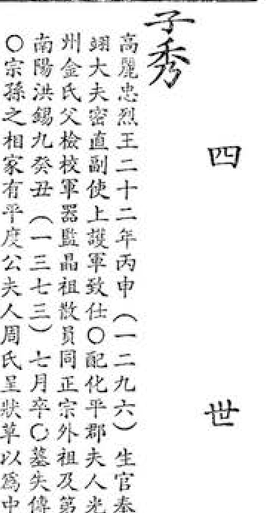 四世
子秀
高麗忠烈王二十二年丙申(一二九六)生官奉
翊大夫密直副使上護軍致仕○配化平郡夫人光
州金氏父檢校軍器監晶祖散員同正宗外祖及第
南陽洪錫九癸丑(一三七三)七月卒○墓失傳
○宗孫之相家有平度公夫人周氏呈狀草以爲中